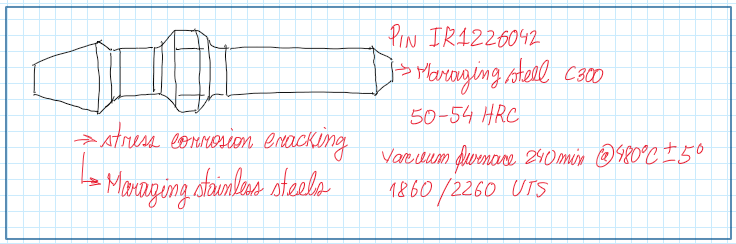 PIN IR1226042
→ Maraging steel C300
50-54 HRC
Vacuum furnace 240min @480°C ± 5°
1860/2260 UTS
→ stress corrosion cracking
↳ Maraging stainless steels